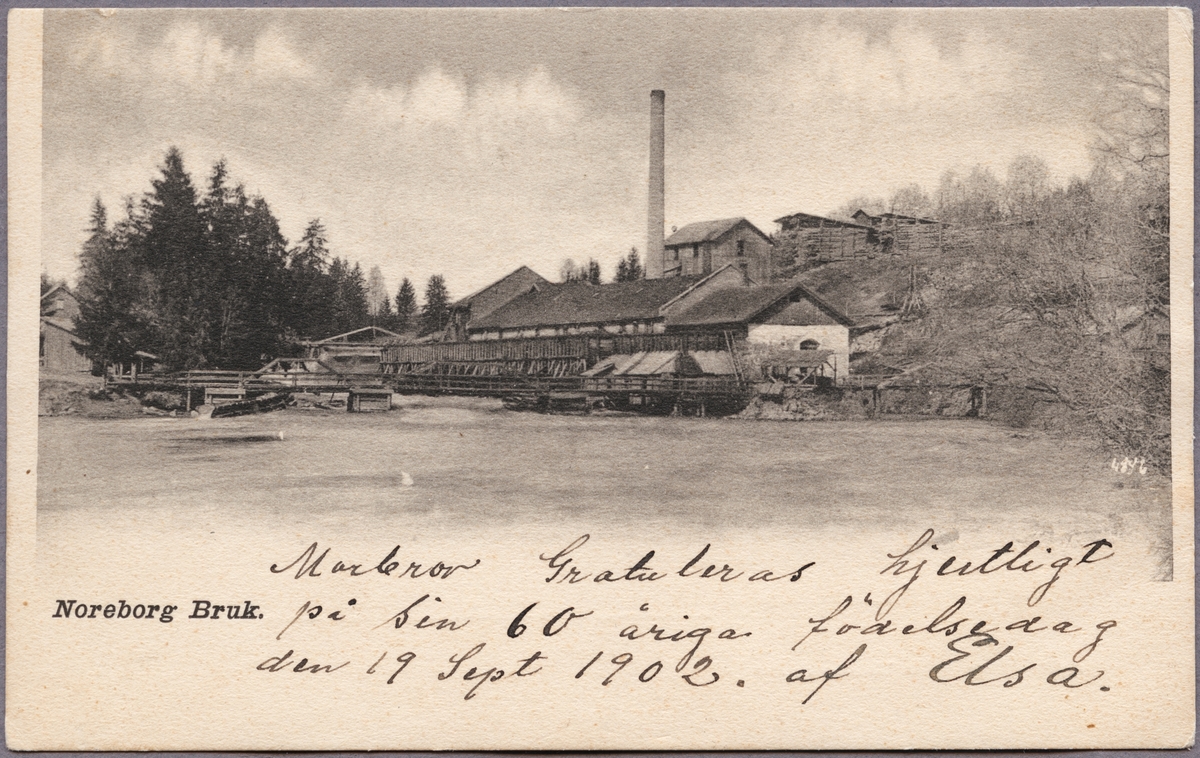 Morbror Gratuleras hjertligt
Noreborg Bruk.
på sin 60 åriga födelsedag
den 19 Sept 1902. af Elsa.